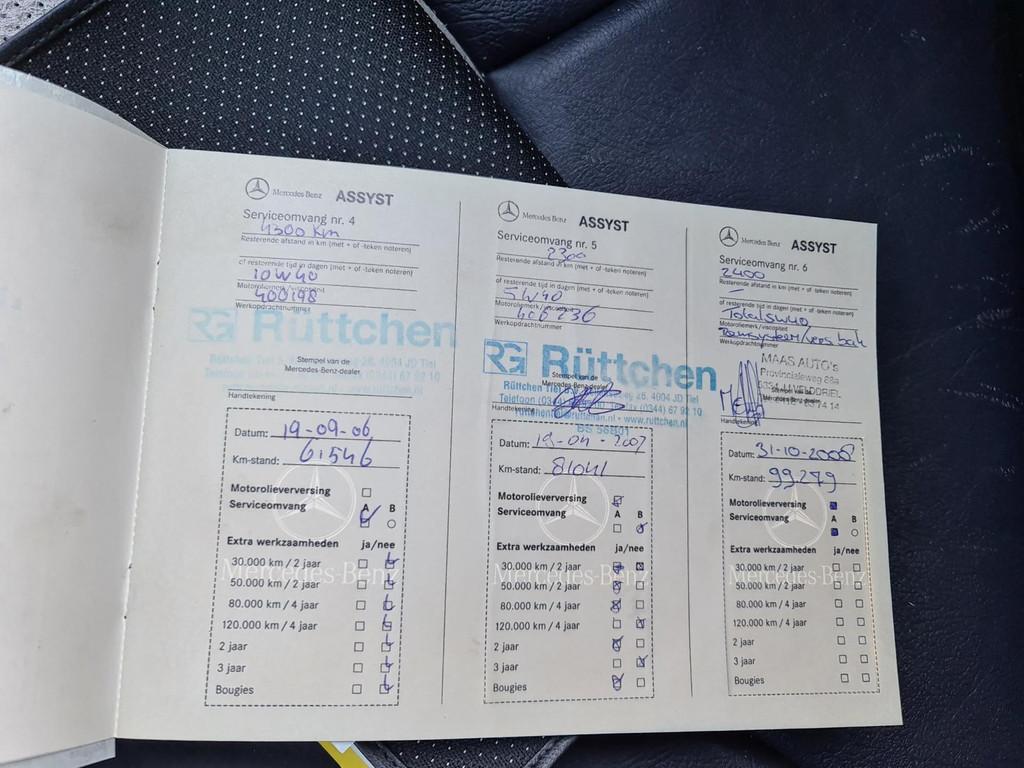 Mercedes-Benz ASSYST
Serviceomvang nr. 4
4300 km
Resterende afstand in km (met + of -teken noteren)
of resterende tijd in dagen (met + of -teken noteren)
10W40
Motoroliemerk/viscositeit
400198
Werkopdrachtnummer
RG Rüttchen
Stempel van de
Mercedes-Benz-dealer
Handtekening
Datum: 19-09-06
Km-stand: 61546
Motorolieverversing
Serviceomvang A B
Extra werkzaamheden ja/nee
30.000 km / 2 jaar
50.000 km / 2 jaar
80.000 km / 4 jaar
120.000 km / 4 jaar
2 jaar
3 jaar
Bougies
Mercedes-Benz
Mercedes-Benz ASSYST
Serviceomvang nr. 5
2300
Resterende afstand in km (met + of -teken noteren)
of resterende tijd in dagen (met + of -teken noteren)
5W40
Motoroliemerk/viscositeit
406236
Werkopdrachtnummer
RG Rüttchen
Stempel van de
Mercedes-Benz-dealer
Rüttchen Tiel 26, 4004 JD Tiel
Telefoon (0344) 67 92 10
Handtekening
www.ruttchen.nl
Datum: 19-04-2007
Km-stand: 81041
Motorolieverversing
Serviceomvang A B
Extra werkzaamheden ja/nee
30.000 km / 2 jaar
50.000 km / 2 jaar
80.000 km / 4 jaar
120.000 km / 4 jaar
2 jaar
3 jaar
Bougies
Mercedes-Benz
Mercedes-Benz ASSYST
Serviceomvang nr. 6
2400
Resterende afstand in km (met + of -teken noteren)
of resterende tijd in dagen (met + of -teken noteren)
Total 5W40
Motoroliemerk/viscositeit
Werkopdrachtnummer
MAAS AUTO's
Provincialeweg 88a
Stempel van de
Mercedes-Benz-dealer
Handtekening
Datum: 31-10-2008
Km-stand: 99.279
Motorolieverversing
Serviceomvang A B
Extra werkzaamheden ja/nee
30.000 km / 2 jaar
50.000 km / 2 jaar
80.000 km / 4 jaar
120.000 km / 4 jaar
2 jaar
3 jaar
Bougies
Mercedes-Benz